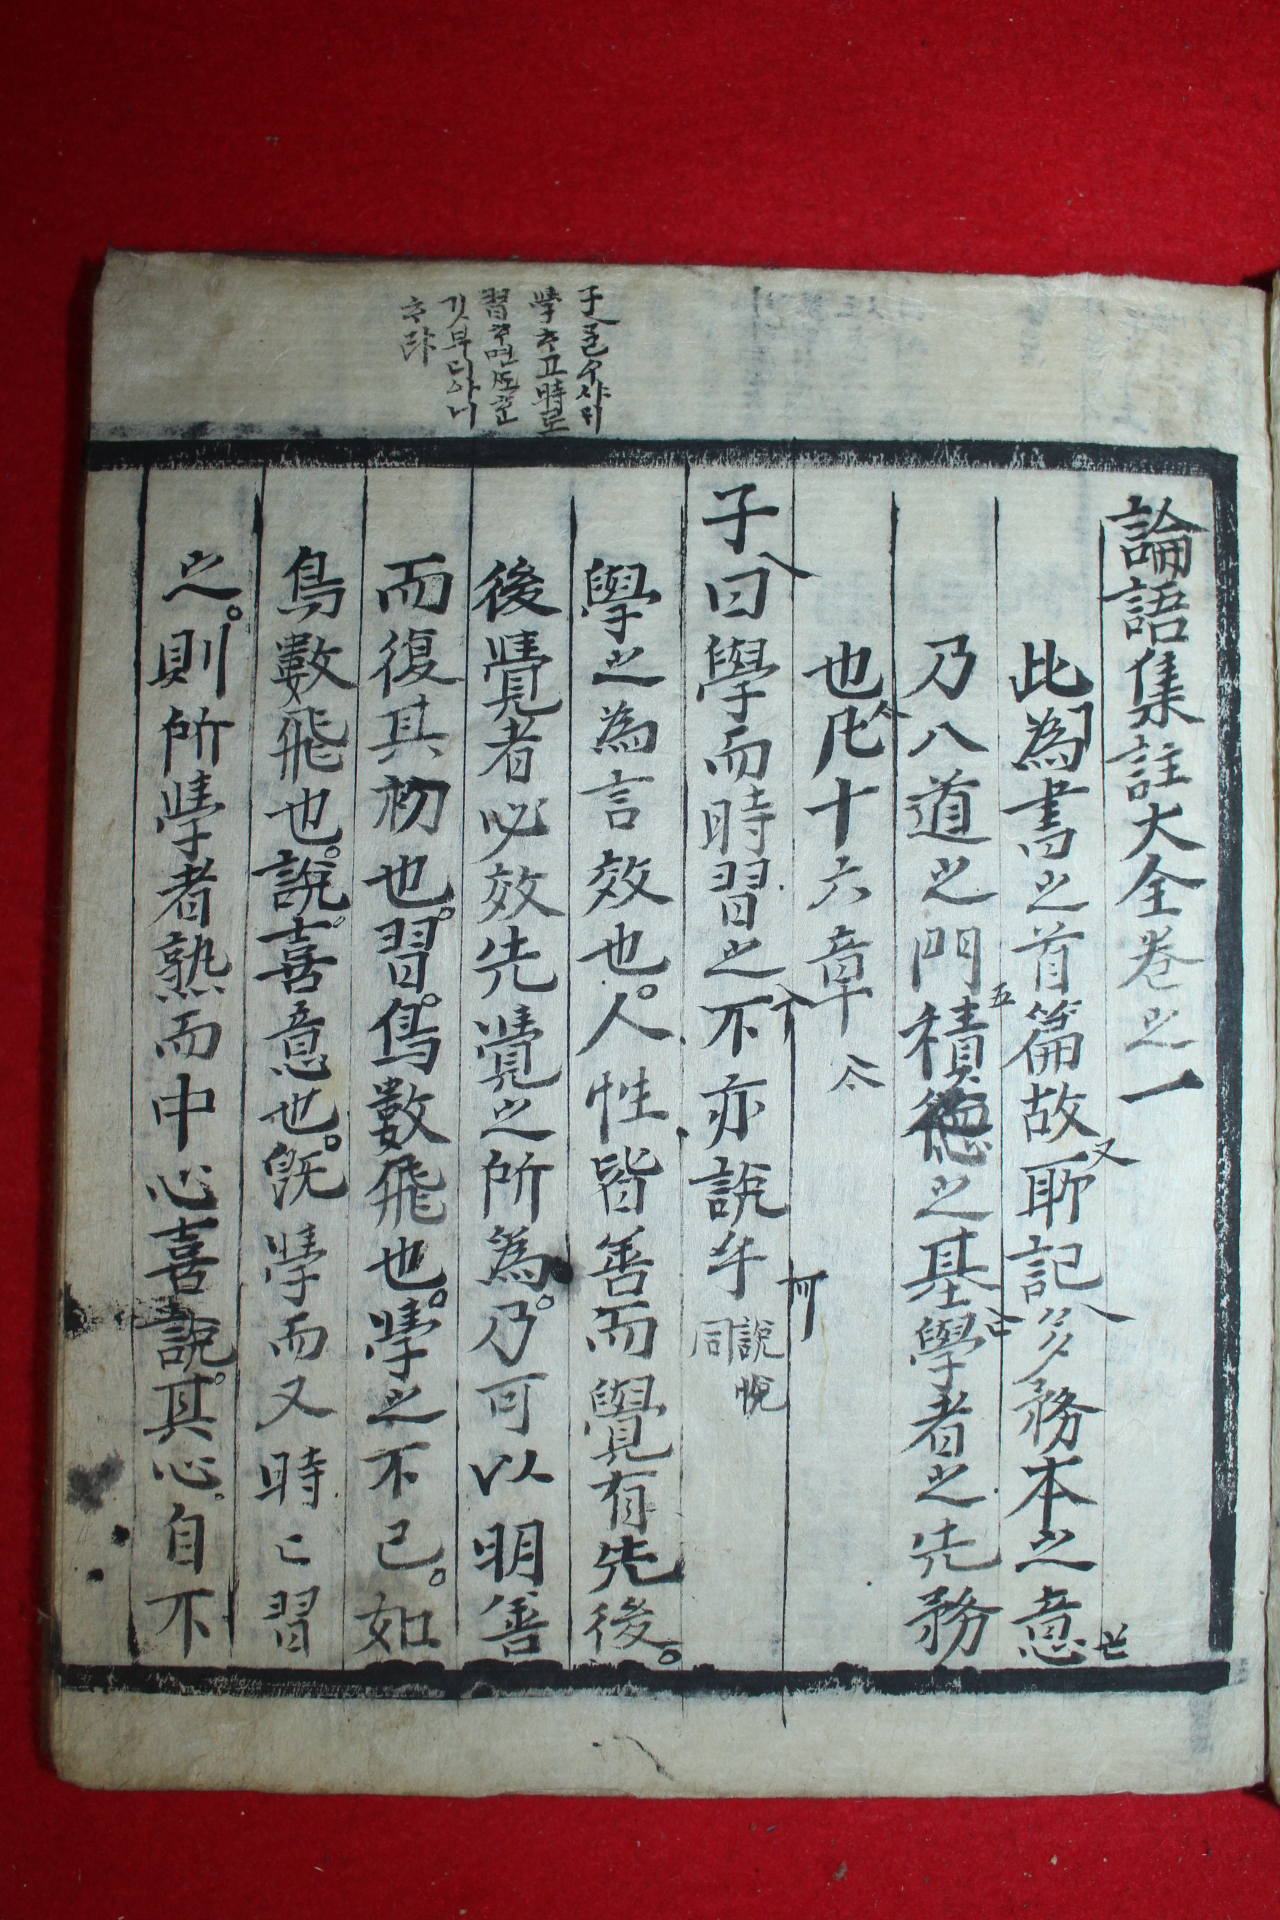 子ᄀᆞᆯᄋᆞ샤ᄃᆡ
學ᄒᆞ고時로
習ᄒᆞ면ᄯᅩᄒᆞᆫ
깃부디아니
ᄒᆞ랴
論語集註大全卷之一
此為書之首篇故所記多務本之意
乃入道之門積德之基學者之先務
也凡十六章
子曰學而時習之不亦說乎 說悅同
學之為言效也。人性皆善而覺有先後。
後覺者必效先覺之所為。乃可以明善
而復其初也。習。鳥數飛也。學之不已。如
鳥數飛也。說。喜意也。既學而又時〻習
之。則所學者熟而中心喜說。其心自不